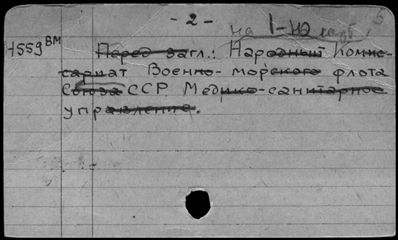 - 2 -
на 1-ю
H559 ВМ
Перед загл.: Народный Комис-
сариат Военно-морского флота
Союза ССР. Медико-санитарное
управление.